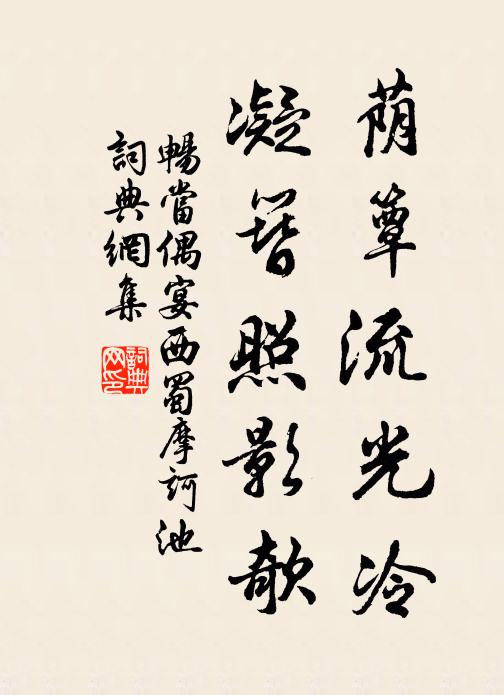 荫簟流光冷
凝簪照影欹
暢當偶宴西蜀摩訶池
詞典網集
詞典網印